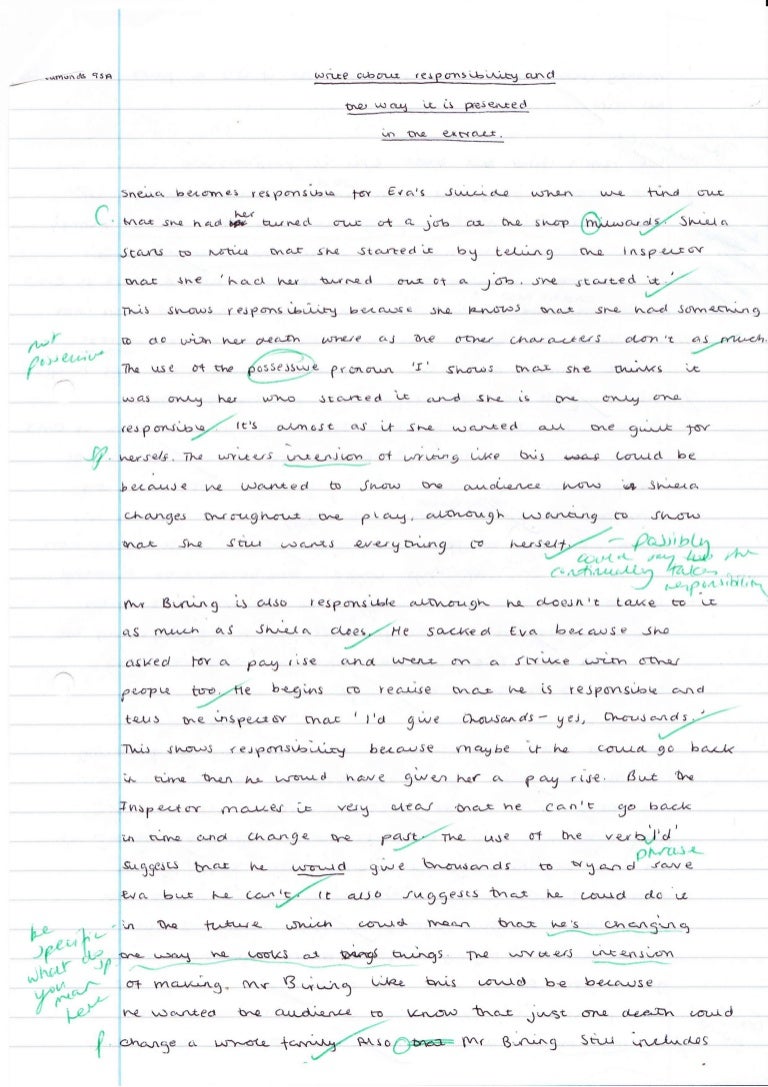 umunds 9SA
write about responsibility and
the way it is presented
in the extract.
Sheila becomes responsible for Eva's suicide when we find out
C. that she had her turned out of a job at the shop milwards. Shiela
starts to notice that she started it by telling the Inspector
that she 'had her turned out of a job. She started it.'
This shows responsibility because she knows that she had something
not possessive
to do with her death where as the other characters don't as much.
The use of the possessive pronoun 'I' shows that she thinks it
was only her who started it and she is the only one
responsible. It's almost as if she wanted all the guilt for
sp. herself. The writers intension of writing like this could be
because he wanted to show the audience how Shiela
changes throughout the play, although wanting to show
that she still wants everything to herself. – possibly
could say how she
continually takes
responsibility
Mr Birling is also responsible although he doesn't take to it
as much as Shiela does. He sacked Eva because she
asked for a pay rise and went on a strike with other
people too. He begins to realise that he is responsible and
tells the inspector that 'I'd give thousands – yes, thousands.'
This shows responsibility because maybe if he could go back
in time then he would have given her a pay rise. But the
Inspector makes it very clear that he can't go back
in time and change the past. The use of the verb 'I'd'
phrase
suggests that he would give thousands to try and save
Eva but he can't. It also suggests that he could do it
in the future which could mean that he's changing
be specific- what do you mean here
the way he looks at things. The writers intension
sp.
of making Mr Birling like this could be because
he wanted the audience to know that just one death could
p. change a whole family. Also Mr Birling still includes